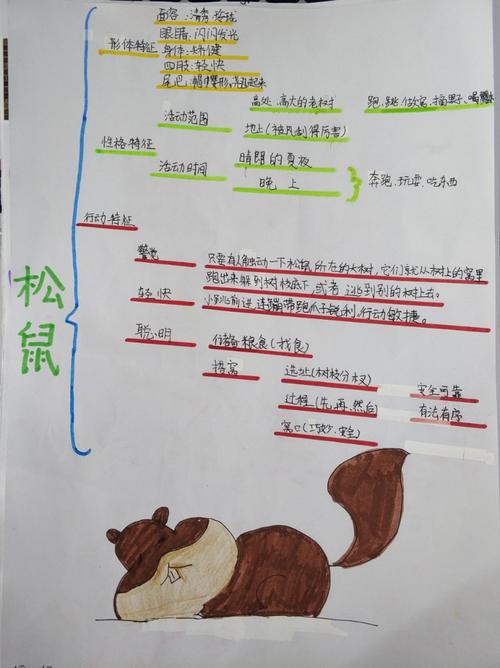 面容:清秀.玲珑
眼睛:闪闪发光
形体特征
身体:矫健
四肢:轻快
尾巴:帽缨形,翘起来
高处、高大的老树
跑、跳、做窝、摘果子、喝露水
活动范围
地上(被风刮得厉害)
性格特征
晴朗的夏夜
活动时间
奔跑、玩耍、吃东西
晚上
行动特征
警觉
只要有人触动一下松鼠所在的大树,它们就从树上的窝里
跑出来躲到树枝底下,或者逃到别的树上去。
轻快
小跳前进,连蹦带跑,爪子锐利,行动敏捷。
松鼠
聪明
储备粮食(找食)
搭窝
选址(树枝分杈)
安全可靠
过程(先、再、然后)
有法有序
窝口(巧妙、安全)